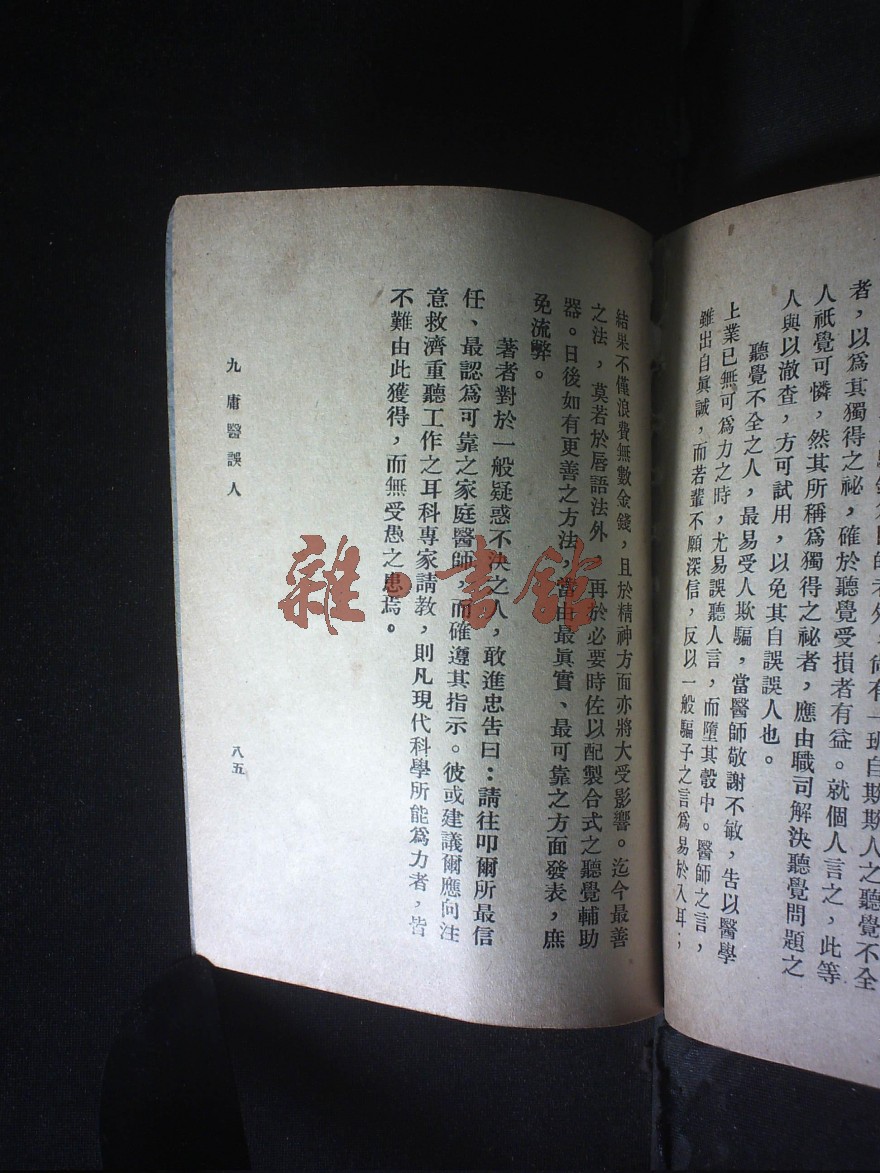 者，以爲其獨得之祕，確於聽覺受損者有益。就個人言之，此等
人祇覺可憐，然其所稱爲獨得之祕者，應由職司解決聽覺問題之
人與以澈查，方可試用，以免其自誤誤人也。
聽覺不全之人，最易受人欺騙，當醫師敬謝不敏，告以醫學
上業已無可爲力之時，尤易誤聽人言，而墮其彀中。醫師之言，
雖出自眞誠，而若輩不願深信，反以一般騙子之言爲易於入耳；
結果不僅浪費無數金錢，且於精神方面亦將大受影響。迄今最善
之法，莫若於唇語法外，再於必要時佐以配製合式之聽覺輔助
器。日後如有更善之方法，當由最眞實、最可靠之方面發表，庶
免流弊。
著者對於一般疑惑不決之人，敢進忠告曰：請往叩爾所最信
任、最認爲可靠之家庭醫師，而確遵其指示。彼或建議爾應向注
意救濟重聽工作之耳科專家請教，則凡現代科學所能爲力者，皆
不難由此獲得，而無受愚之患焉。
九 庸醫誤人
八五
雜·書館